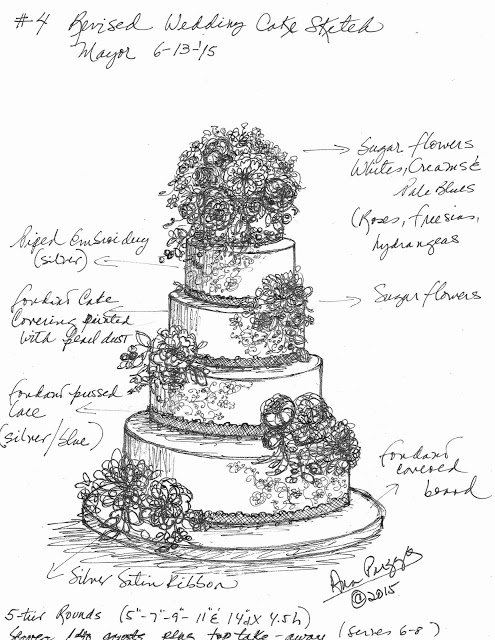 #4 Revised Wedding Cake Sketch
Mayor 6-13-'15
Sugar flowers
Whites, Creams &
Pale Blues
(Roses, freesias,
hydrangeas
Piped Embroidery
(silver)
Sugar flowers
fondant Cake
Covering painted
with pearl dust
fondant-pussed
lace
(silver/blue)
fondant
covered
board
Silver Satin Ribbon
Ann
©2015
5-tier Rounds (5"-7"-9"-11" & 14" d X 4.5 h)
guests plus top take-away (serves 6-8)